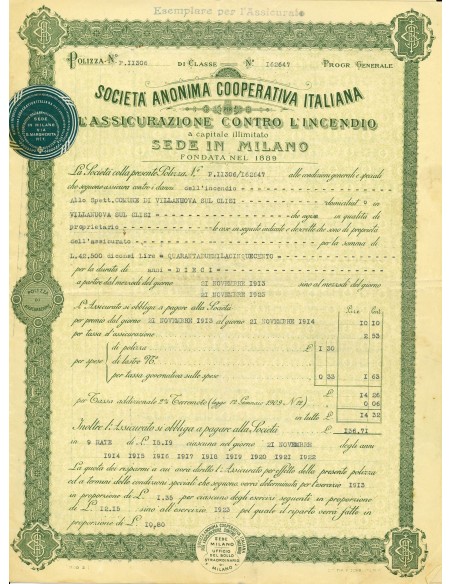 Esemplare per l'Assicurato
POLIZZA-N.° P.11306 DI CLASSE N° 162647 PROGR. GENERALE.
SOCIETÀ ANONIMA COOPERATIVA ITALIANA
L'ASSICURAZIONE CONTRO L'INCENDIO
a capitale illimitato
SEDE IN MILANO
FONDATA NEL 1889
SEDE
IN MILANO
VIA
S. MARGHERITA
La Società colla presente Polizza N.° P.11306/162647 alle condizioni generali e speciali
che seguono assicura contro i danni dell'incendio
Allo Spett. COMUNE DI VILLANUOVA SUL CLISI domiciliat o
VILLANUOVA SUL CLISI che agisce in qualità di
proprietario le cose in seguito indicate e descritte che sono di proprietà
dell'assicurato per la somma di
L. 42.500 diconsi Lire QUARANTADUEMILACINQUECENTO
per la durata di anni DIECI
a partire dal mezzodì del giorno 21 NOVEMBRE 1913 sino al mezzodì del giorno
21 NOVEMBRE 1923
POLIZZA
DI
L'Assicurato si obbliga a pagare alla Società Lire Cent.
per premio dal giorno 21 NOVEMBRE 1913 al giorno 21 NOVEMBRE 1914 10 10
per tassa d'assicurazione 2 53
di polizza £ 1 30
per spese di lastre N.°
per tassa governativa sulle spese 0 33 1 63
£ 14 26
per Tassa addizionale 2% Terremoto (legge 12 Gennajo 1909 N. 12) 0 06
in tutto £ 14 32
Inoltre l'Assicurato si obbliga a pagare alla Società £ 136.71
in 9 RATE di £ 15.19 ciascuna nel giorno 21 NOVEMBRE degli anni
1914 1915 1916 1917 1918 1919 1920 1921 1922
La quota dei risparmi a cui avrà diritto l'Assicurato per effetto della presente polizza
ed a termini delle condizioni speciali che seguono verrà determinata per l'esercizio 1913
in proporzione di £ 1.35 per ciascuno degli esercizi seguenti in proporzione
di £ 12.15 sino all'esercizio 1923 pel quale il riparto verrà fatto in
proporzione di £ 10.80
SEDE
MILANO
UFFICIO
DEL BOLLO
STRAORDINARIO
DI MILANO